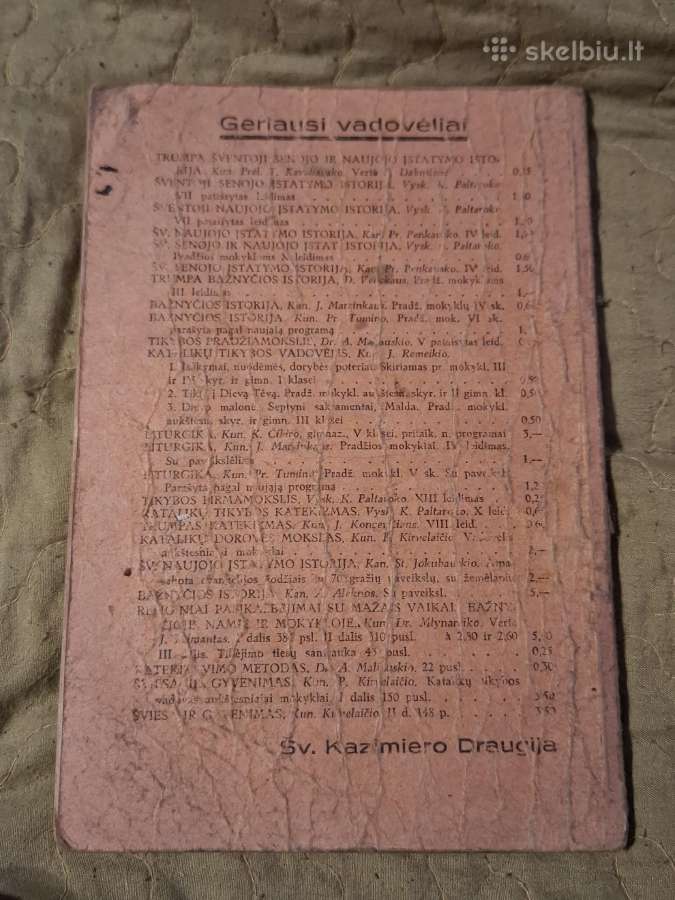 skelbiu.lt
Geriausi vadovėliai
TRUMPA ŠVENTOJI SENOJO IR NAUJOJO ĮSTATYMO ISTO-
RIJA. Kun. Prel. Vertė
ŠVENTOJI SENOJO ĮSTATYMO ISTORIJA, Vysk. K. Paltaroko
VII pataisytas leidimas
ŠVENTOJI NAUJOJO ĮSTATYMO ISTORIJA, Vysk. K. Paltaroko
VII pataisytas leidimas
ŠV. NAUJOJO ĮSTATYMO ISTORIJA, Kan. Pr. Penkausko. IV leid.
ŠV. SENOJO IR NAUJOJO ĮSTAT. ISTORIJA, Vysk. K. Paltaroko.
Pradžios mokykloms X leidimas
ŠV. SENOJO ĮSTATYMO ISTORIJA, Kan. Pr. Penkausko. IV leid. 1,50
TRUMPA BAŽNYČIOS ISTORIJA, D. Pradž. mokykloms
III leidimas 1,—
BAŽNYČIOS ISTORIJA, Kun. J. Marcinkaus. Pradž. mokyklų IV sk.
BAŽNYČIOS ISTORIJA, Kun. Pr. Tumino. Pradž. mok. VI sk.
Parašyta pagal naująją programą 1,—
TIKYBOS PRADŽIAMOKSLIS, Dr. A. V pataisytas leid.
KATALIKŲ TIKYBOS VADOVĖLIS, Kun. J. Remeikio.
1. Įsakymai, nuodėmės, dorybės, poteriai. Skiriamas pr. mokykl. III
ir IV skyr. ir gimn. I klasei 0,50
2. Tikiu į Dievą Tėvą. Pradž. mokykl. aukštesn. skyr. ir II gimn. kl. 0,50
3. Dievo malonė. Septyni sakramentai, Malda. Pradž. mokykl.
aukštesn. skyr. ir gimn. III klasei 0,50
LITURGIKA, Kun. K. Čibiro, gimnaz., V klasei, pritaik. n. programai 3,—
LITURGIKA, Kun. J. Marcinkaus. Pradžios mokyklai. IV leidimas.
Su paveikslėliais 1,—
LITURGIKA, Kun. Pr. Tumino. Pradž. mokykl. V sk. Su paveiksl.
Parašyta pagal naująją programą
TIKYBOS PIRMAMOKSLIS, Vysk. K. Paltaroko. XIII leidimas
KATALIKŲ TIKYBOS KATEKIZMAS, Vysk. K. Paltaroko, X leid.
TRUMPAS KATEKIZMAS, Kun. J. VIII leid.
KATALIKŲ DOROVĖS MOKSLAS, Kun. P. Kirvelaičio
aukštesniajai mokyklai 2,—
ŠV. NAUJOJO ĮSTATYMO ISTORIJA, Kan. St. Jokubauskio. Apra-
šyta evangelijos žodžiais su 70 gražių paveikslų, su žemėlapiu 2,—
BAŽNYČIOS ISTORIJA, Kan. A. Aleknos. Su paveiksl. 5,—
RELIGINIAI PASIKALBĖJIMAI SU MAŽAIS VAIKAIS BAŽNY-
ČIOJE, NAMIE IR MOKYKLOJE, Kun. Dr. Mlynariko. Vertė
J. I dalis psl. II dalis 310 pusl. à 2,80 ir 2,60
III dalis. Tikėjimo tiesų santrauka 45 pusl. 0,25
KATEKIZAVIMO METODAS, Dr. A. 22 pusl. 0,30
ŠVIESA IR GYVENIMAS, Kun. P. Kirvelaičio, Katalikų tikybos
vadovas aukštesniajai mokyklai, I dalis 150 pusl. 3,50
ŠVIESA IR GYVENIMAS, Kun. Kirvelaičio II d. 148 p. 3,50
Šv. Kazimiero Draugija